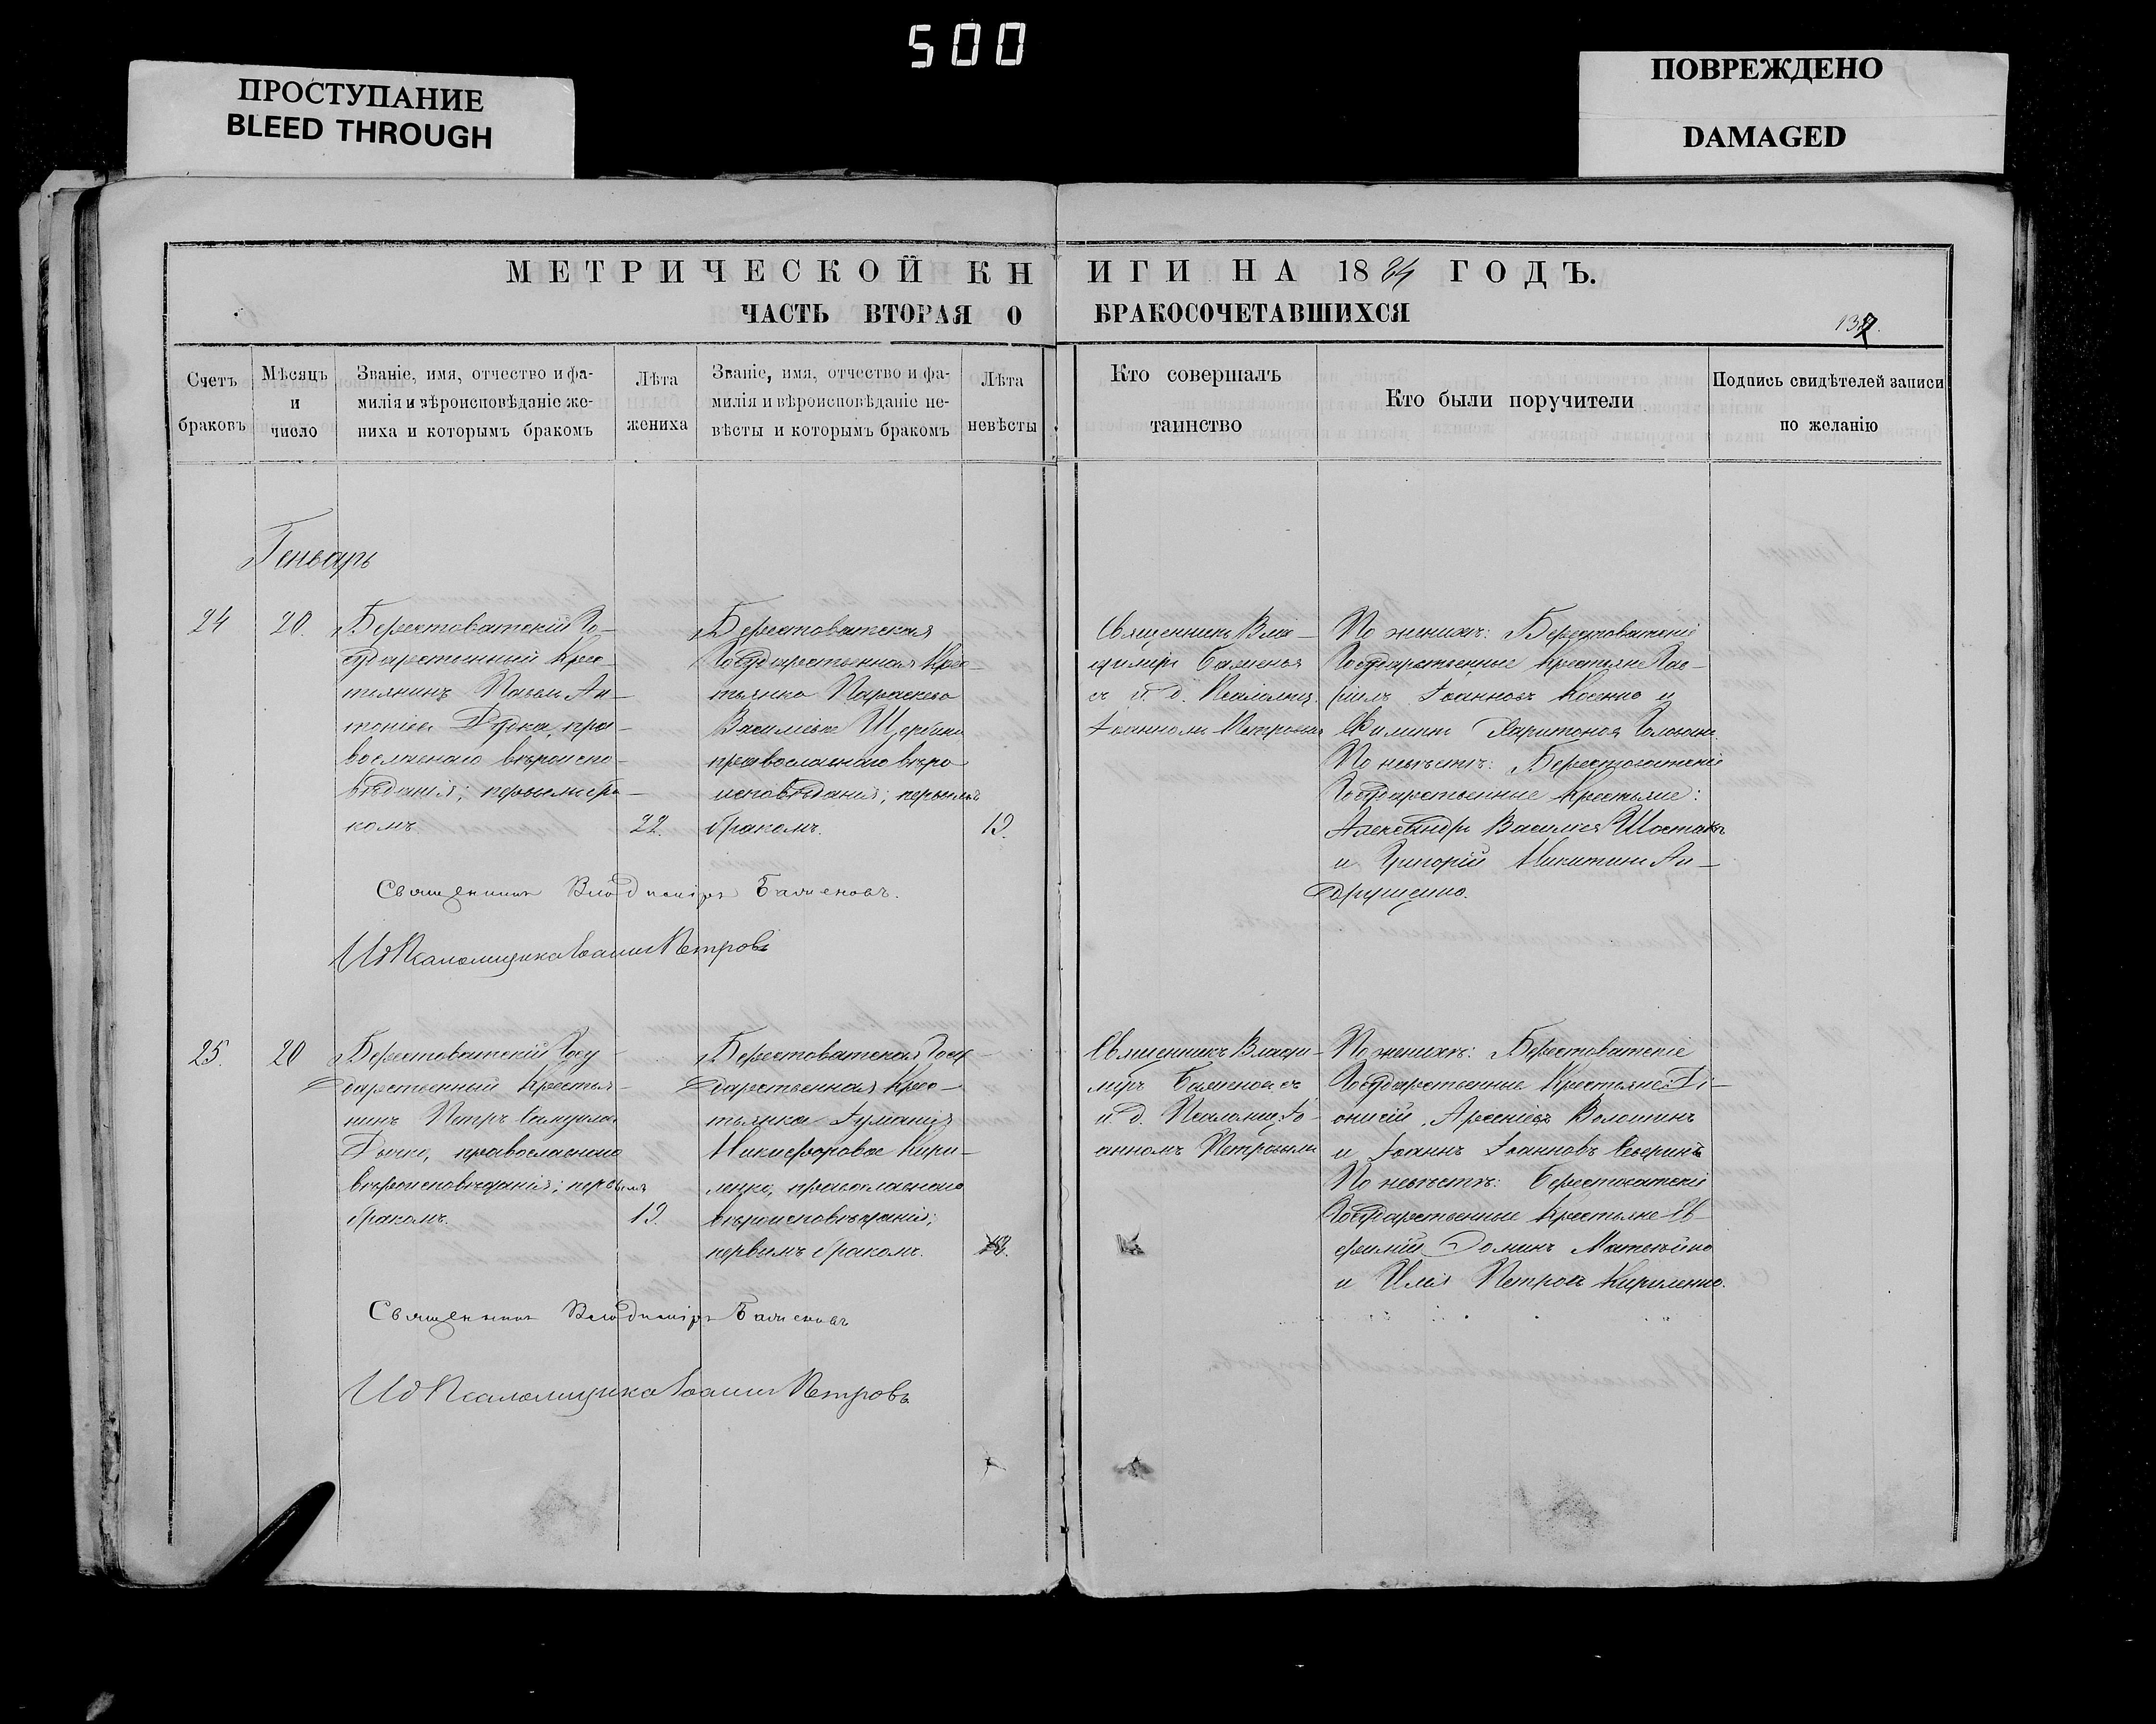 500
ПРОСТУПАНИЕ
BLEED THROUGH
ПОВРЕЖДЕНО
DAMAGED
МЕТРИЧЕСКОЙ КНИГИ НА 1884 ГОДЪ.
ЧАСТЬ ВТОРАЯ О БРАКОСОЧЕТАВШИХСЯ
Счетъ
браковъ
Мѣсяцъ
и
число
Званіе, имя, отчество и фа-
милія и вѣроисповѣданіе же-
ниха и которымъ бракомъ
Лѣта
жениха
Званіе, имя, отчество и фа-
милія и вѣроисповѣданіе не-
вѣсты и которымъ бракомъ
Лѣта
невѣсты
Кто совершалъ
таинство
Кто были поручители
Подпись свидѣтелей записи
по желанію
Генварь
24
20.
Берестоватскій Го-
сударственный Крес-
тьянинъ Павелъ Ан-
тоніевъ Дудка, пра-
вославнаго вѣроиспо-
вѣданія; первымъ бра-
комъ.
22.
Берестоватская
Государственная Крес-
тьянка Параскева
Василіева Щербина
православнаго вѣро-
исповѣданія; первымъ
бракомъ.
19.
Священникъ Вла-
диміръ Баженовъ
съ и. д. Псаломщ.
Іоанномъ Петровымъ
По женихѣ: Берестоватскіе
Государственные Крестьяне
Іоанновъ и
Харитоновъ
По невѣстѣ: Берестоватскіе
Государственные Крестьяне:
Александръ Василіевъ Шостакъ
и Григорій Никитинъ Ан-
друщенко.
Священникъ Владиміръ Баженовъ.
Ид Псаломщика Іоаннъ Петровъ
25.
20
Берестоватскій Госу-
дарственный Крестья-
нинъ Петръ
православнаго
вѣроисповѣданія; первымъ
бракомъ.
19.
Берестоватская Госу-
дарственная Крес-
тьянка Іуліанія
Никифорова Кири-
ленко, православнаго
вѣроисповѣданія;
первымъ бракомъ.
Священникъ Влади-
міръ Баженовъ съ
и. д. Псаломщ. Іо-
анномъ Петровымъ
По женихѣ: Берестоватскіе
Государственные Крестьяне: Ді-
онисій Арсеніевъ Волошинъ
и Іоаннъ Іоанновъ Северинъ
По невѣстѣ: Берестоватскіе
Государственные Крестьяне Ев-
фимій Матвѣйко
и Илія Петровъ Кириленко.
Священникъ Владиміръ Баженовъ
Ид Псаломщика Іоаннъ Петровъ